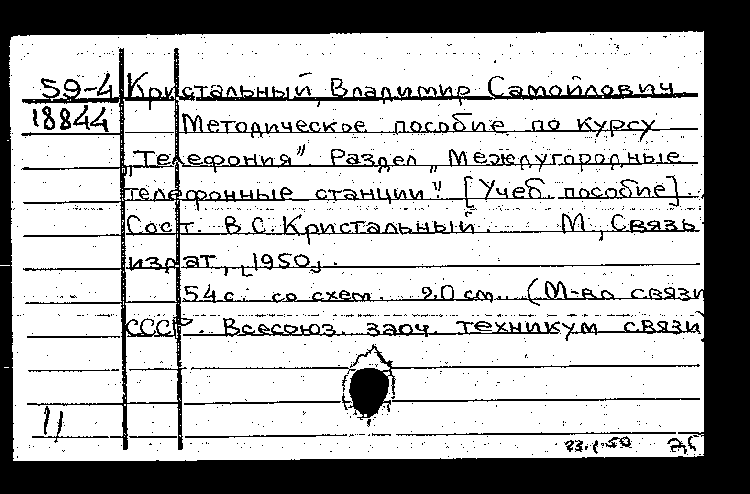 59-4 Кристальный, Владимир Самойлович.
18844 Методическое пособие по курсу
„Телефония". Раздел „Междугородные
телефонные станции". [Учеб. пособие].
Сост. В.С. Кристальный. М., Связь-
издат, [1950].
54 с. со схем. 20 см. (М-во связи
СССР. Всесоюз. заоч. техникум связи)
11